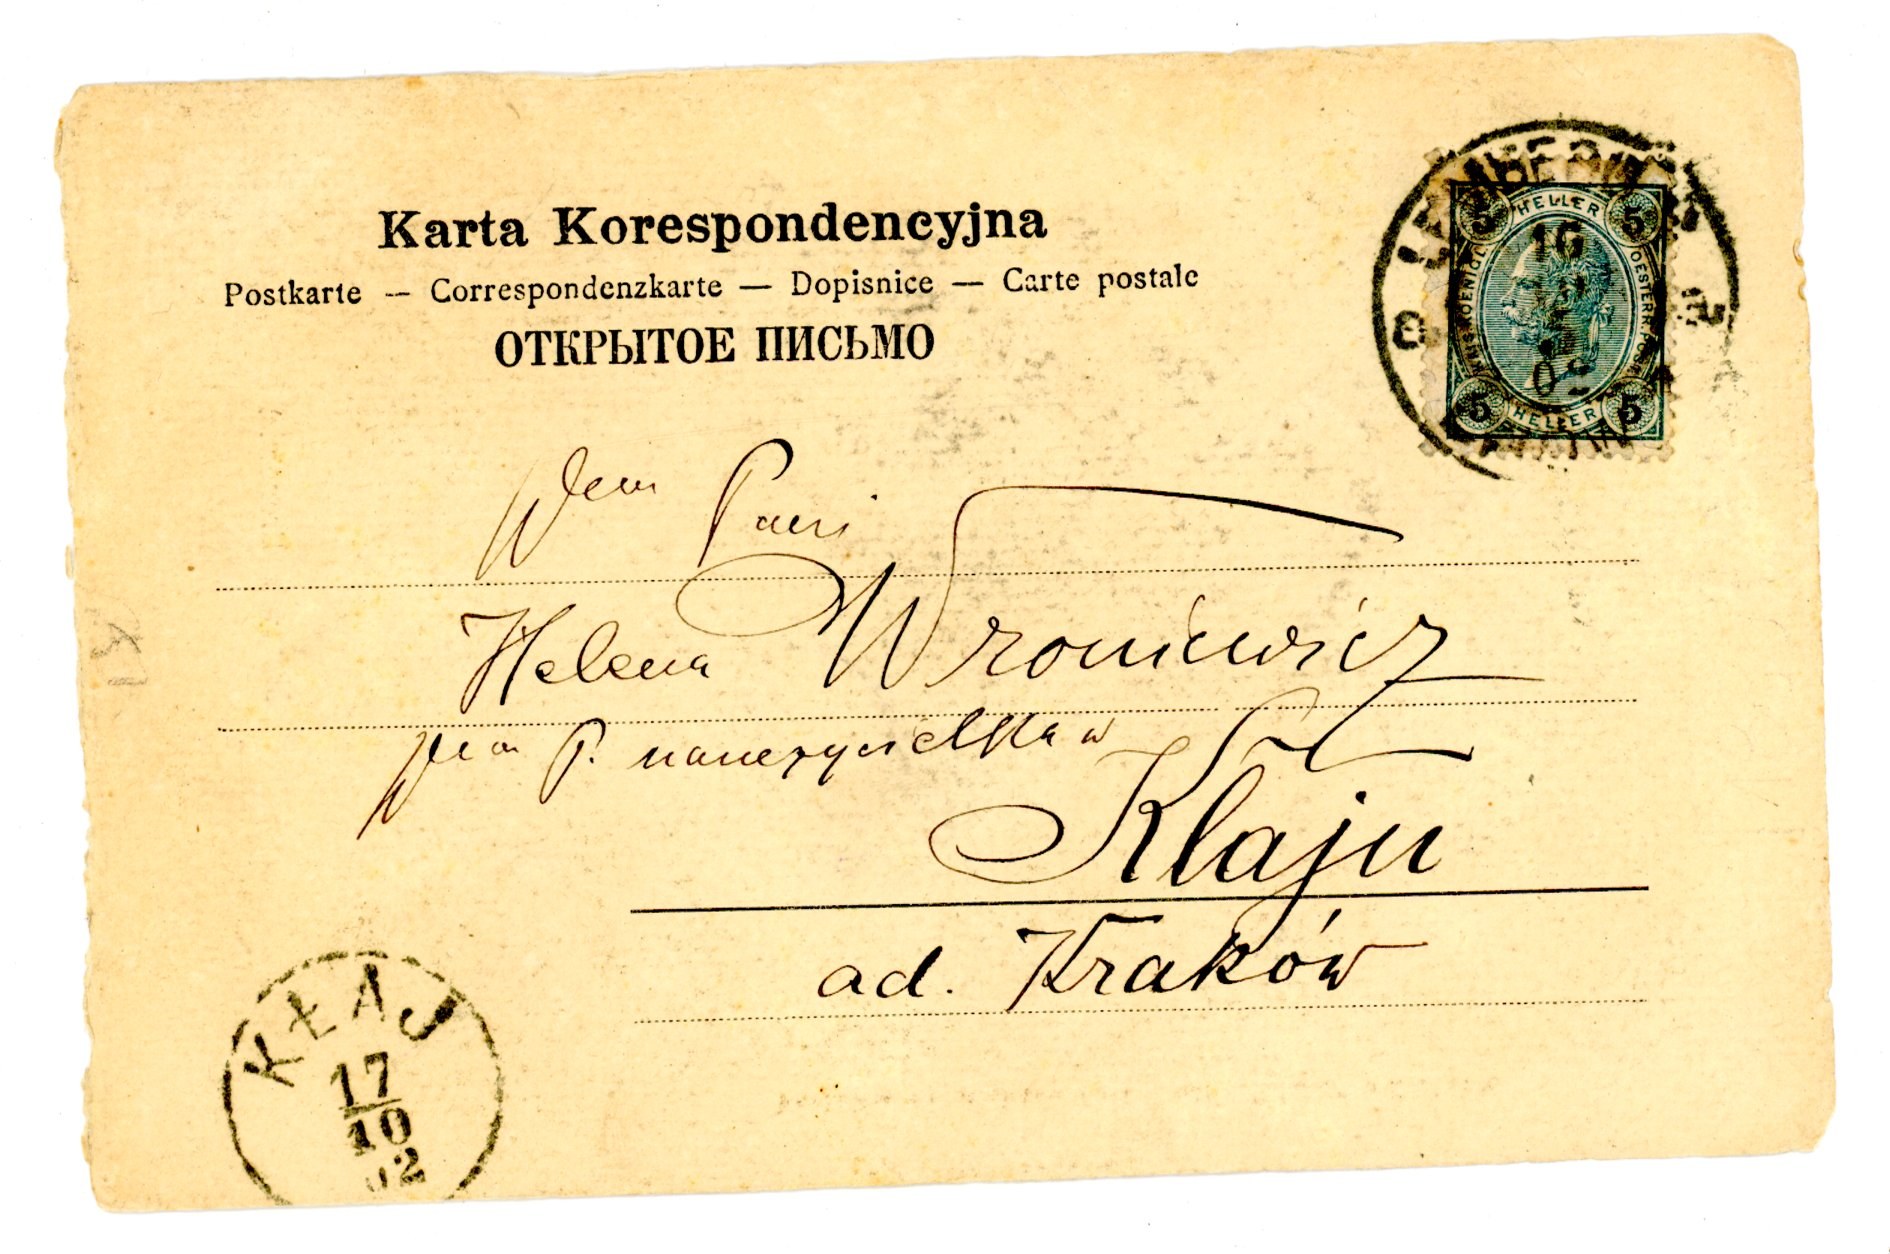 Karta Korespondencyjna
Postkarte — Correspondenzkarte — Dopisnice — Carte postale
ОТКРЫТОЕ ПИСЬМО
5 HELLER 5
5 HELLER 5
16
Wem Pani
Helena Wroniewicz
P. nauczycielka w
Kłaju
ad. Kraków
KŁAJ
17
10
02